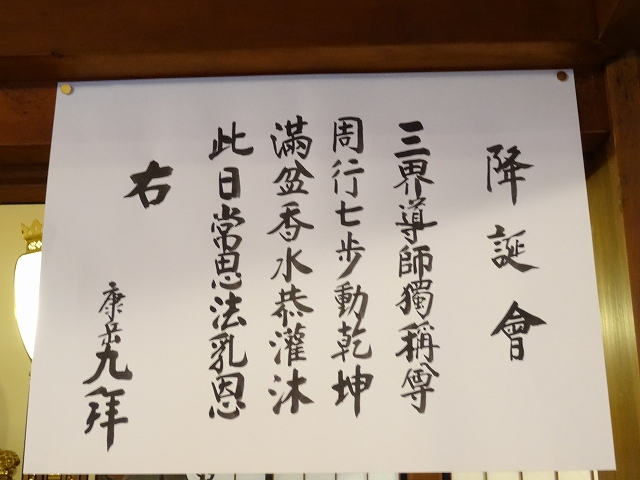 降誕會
三界導師獨稱尊
周行七歩動乾坤
滿盆香水恭灌沐
此日常思法乳恩
右
康岳九拜